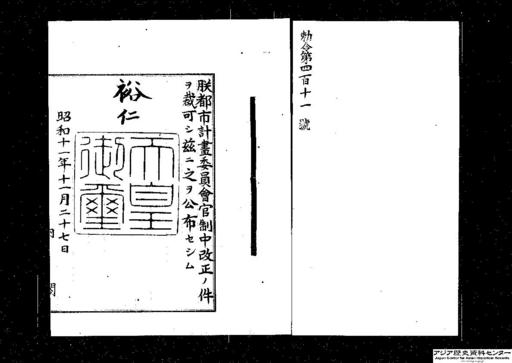 勅令第四百十一號
朕都市計畫委員會官制中改正ノ件
ヲ裁可シ茲ニ之ヲ公布セシム
裕仁
天皇
御璽
昭和十一年十一月二十七日
内閣
アジア歴史資料センター
Japan Center for Asian Historical Records